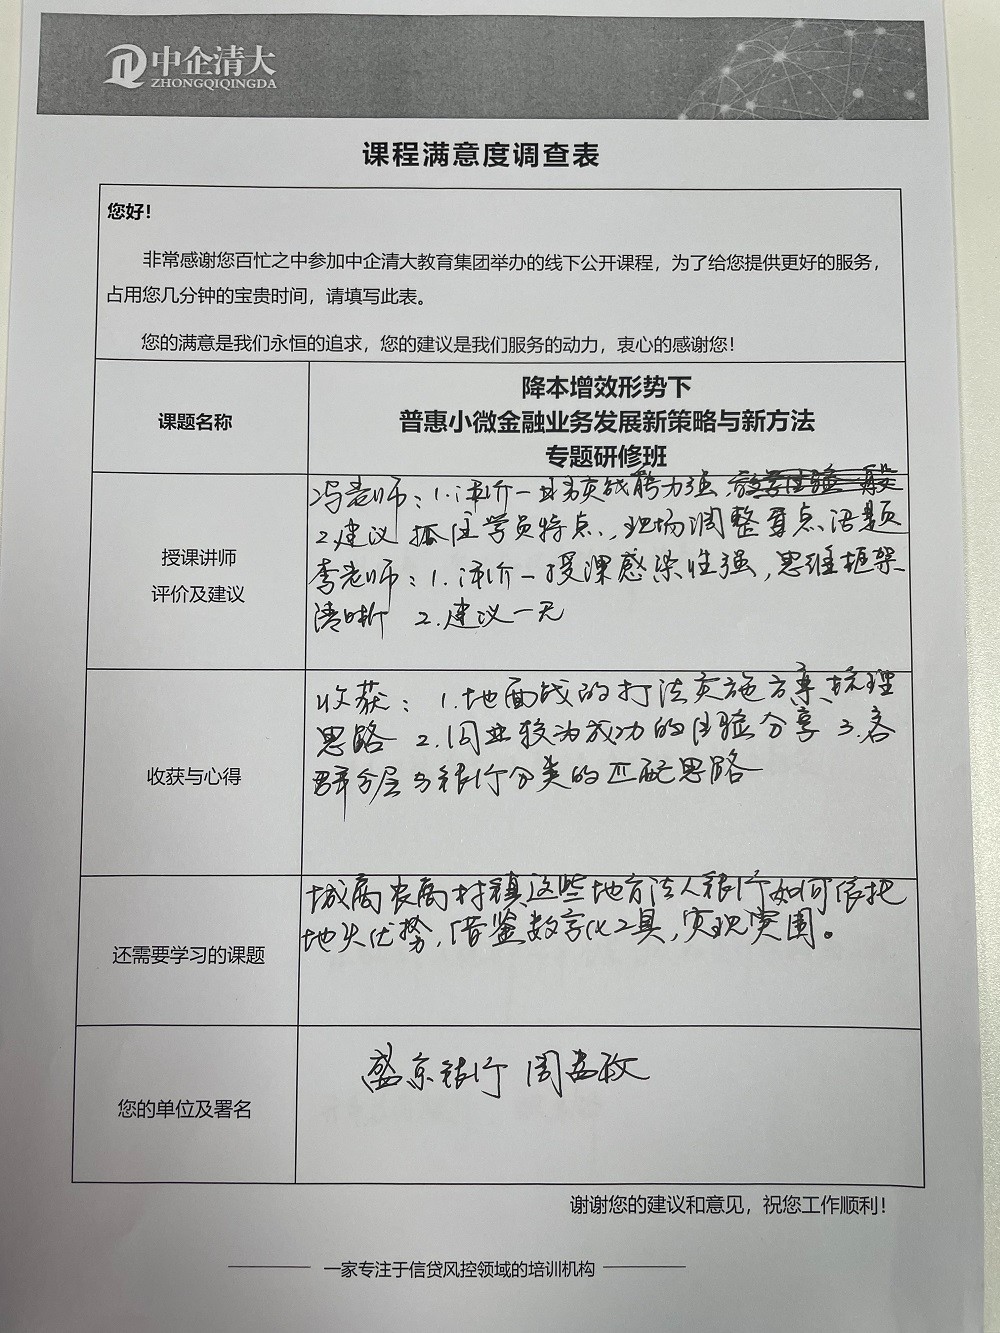 中企清大
ZHONGQIQINGDA
课程满意度调查表
您好！
非常感谢您百忙之中参加中企清大教育集团举办的线下公开课程，为了给您提供更好的服务，
占用您几分钟的宝贵时间，请填写此表。
您的满意是我们永恒的追求，您的建议是我们服务的动力，衷心的感谢您！
课题名称
降本增效形势下
普惠小微金融业务发展新策略与新方法
专题研修班
授课讲师
评价及建议
冯老师：1.评价－业务实战能力强，
2.建议 抓住学员特点、现场调整重点话题
李老师：1.评价－授课感染性强，思维框架
清晰 2.建议－无
收获与心得
收获：1.地面战的打法实施方案、梳理
思路 2.同业较为成功的经验分享 3.客
群分层与银行分类的匹配思路
还需要学习的课题
城商农商村镇这些地方法人银行如何依托
地头优势，借鉴数字化工具，实现突围。
您的单位及署名
盛京银行 周
谢谢您的建议和意见，祝您工作顺利！
一家专注于信贷风控领域的培训机构